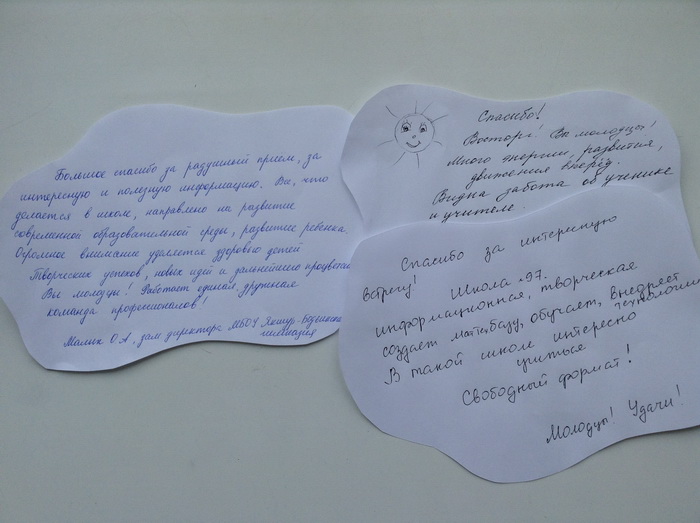 Большое спасибо за радушный прием, за
интересную и полезную информацию. Все, что
делается в школе, направлено на развитие
современной образовательной среды, развитие ребенка.
Огромное внимание уделяется здоровью детей.
Творческих успехов, новых идей и дальнейшего процветан
Вы молодцы! Работает единая, дружная
команда профессионалов!
О.А., зам. директора МБОУ Якшур-Бодьинская
гимназия
Спасибо!
Восторг! Вы молодцы!
Много энергии, развития,
движения вперед.
Видна забота об ученике
и учителе.
Спасибо за интересную
встречу! Школа №97.
информационная, творческая
создает мат.базу, обучает, внедряет
технологии
В такой школе интересно
учиться
Свободный формат!
Молодцы! Удачи!